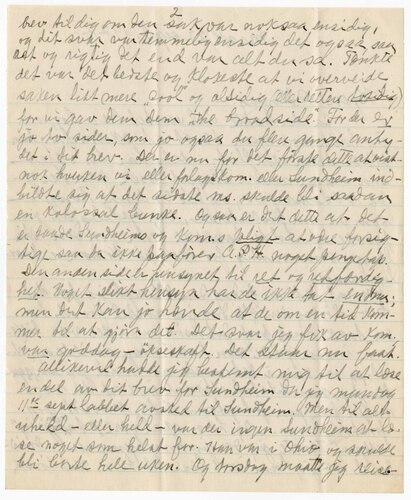 2
brev til dig om den sak var noksaa ensidig,
og dit svar var temmelig ensidig det ogsaa saa
ret og rigtig det end var alt du sa. Tænkte
det var det bedste og klokeste at vi overveide
saken litt mere "cool" og alsidig
før vi gav dem the broadside. For der er
jo to sider, som jo ogsaa du flere gange anty-
det i dit brev. Der er nu for det første dette at vist-
nok hverken vi eller forlagskom. eller Sundheim ind-
bildte sig at det sidste ms. skulde bli saadan
en kolossal bunke. Ogsaa er det dette at det
er baade Sundheims og Kom.s pligt at være forsig-
tige saa de ikke paafører A.P.H. noget pengetap.
Den anden side er hensynet til ret og retfærdig-
het. Noget slikt hensyn har de ikke tat endnu;
men det kan jo hende at de om en tid kom-
mer til at gjøre det. Det svar jeg fik av Kom.
var goddag – økseskaft. Det staar nu fast.
Allikevel hadde jeg bestemt mig til at læse
en del av dit brev for Sundheim da jeg mandag
11te sept labbet avsted til Sundheim. Men til alt
uheld – eller held – var der ingen Sundheim at læ-
se noget som helst for. Han var i Ohio og skulde
bli borte hele uken. Og torsdag maatte jeg reise